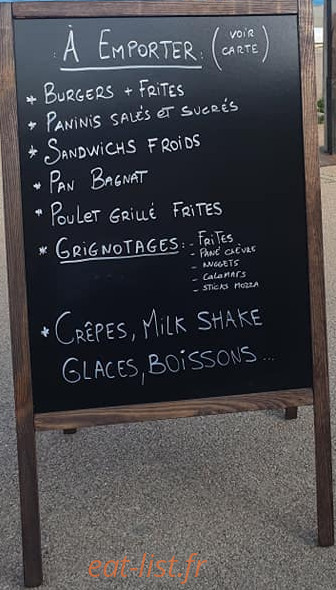 À EMPORTER : (VOIR CARTE)
* BURGERS + FRITES
* PANINIS SALÉS ET SUCRÉS
* SANDWICHS FROIDS
* PAN BAGNAT
* POULET GRILLÉ FRITES
* GRIGNOTAGES : - FRITES
- PANÉ CHÈVRE
- NUGGETS
- CALAMARS
- STICKS MOZZA
* CRÊPES, MILK SHAKE
GLACES, BOISSONS...
eat-list.fr